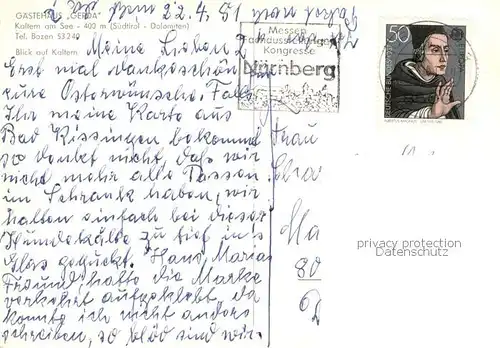 GÄSTEHAUS „GERDA"
Kaltern am See - 400 m (Südtirol - Dolomiten)
Tel. Bozen 53249
Blick auf Kaltern
22.4.81
Meine Lieben 2
Erst mal Dankeschön
für Osterwünsche. Falls
Ihr meine Karte aus
Bad Kissingen bekommt
so denkt nicht, daß wir
nicht mehr alle Tassen
im Schrank haben, wir
halten einfach bei dieser
Hundekälte zu tief in's
Glas geguckt. Hans Marias
Freund hatte die Marke
verkehrt aufgeklebt, da
konnte ich nicht anders
schreiben, so blöd sind wir
Messen
Fachausstellungen
Kongresse
Nürnberg
50
Frau
Ma
80
privacy protection
Datenschutz